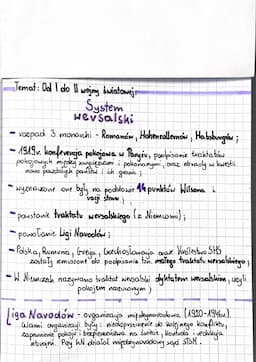 Temat: Od I do II wojny światowej.
System
wersalski
- rozpad 3 monarchii - Romanów, Hohenzollernów, Habsburgów;
- 1919r. konferencja pokojowa w Paryżu, podpisanie traktatów
pokojowych między zwycięzcami i pokonanymi, oraz obrady w kwestii
nowo powstałych państw i ich granic;
- wyznawane one były na podstawie 14 punktów Wilsona i
racji stanu;
- powstanie traktatu wersalskiego (z Niemcami);
- powołanie Ligi Narodów;
- Polska, Rumunia, Grecja, Czechosłowacja oraz Królestwo SHS
zostały zmuszone do podpisania tzw. małego traktatu wersalskiego;
- W Niemczech nazywano traktat wersalski dyktatem wersalskim, czyli
pokojem narzuconym;
Liga Narodów - organizacja międzynarodowa (1920-1946r.).
Celami organizacji były: niedopuszczenie do kolejnego konfliktu,
zapewnienie pokoju i bezpieczeństwa na świecie, kontrola i redukcja
zbrojeń. Przy LN działał międzynarodowy sąd STSM.